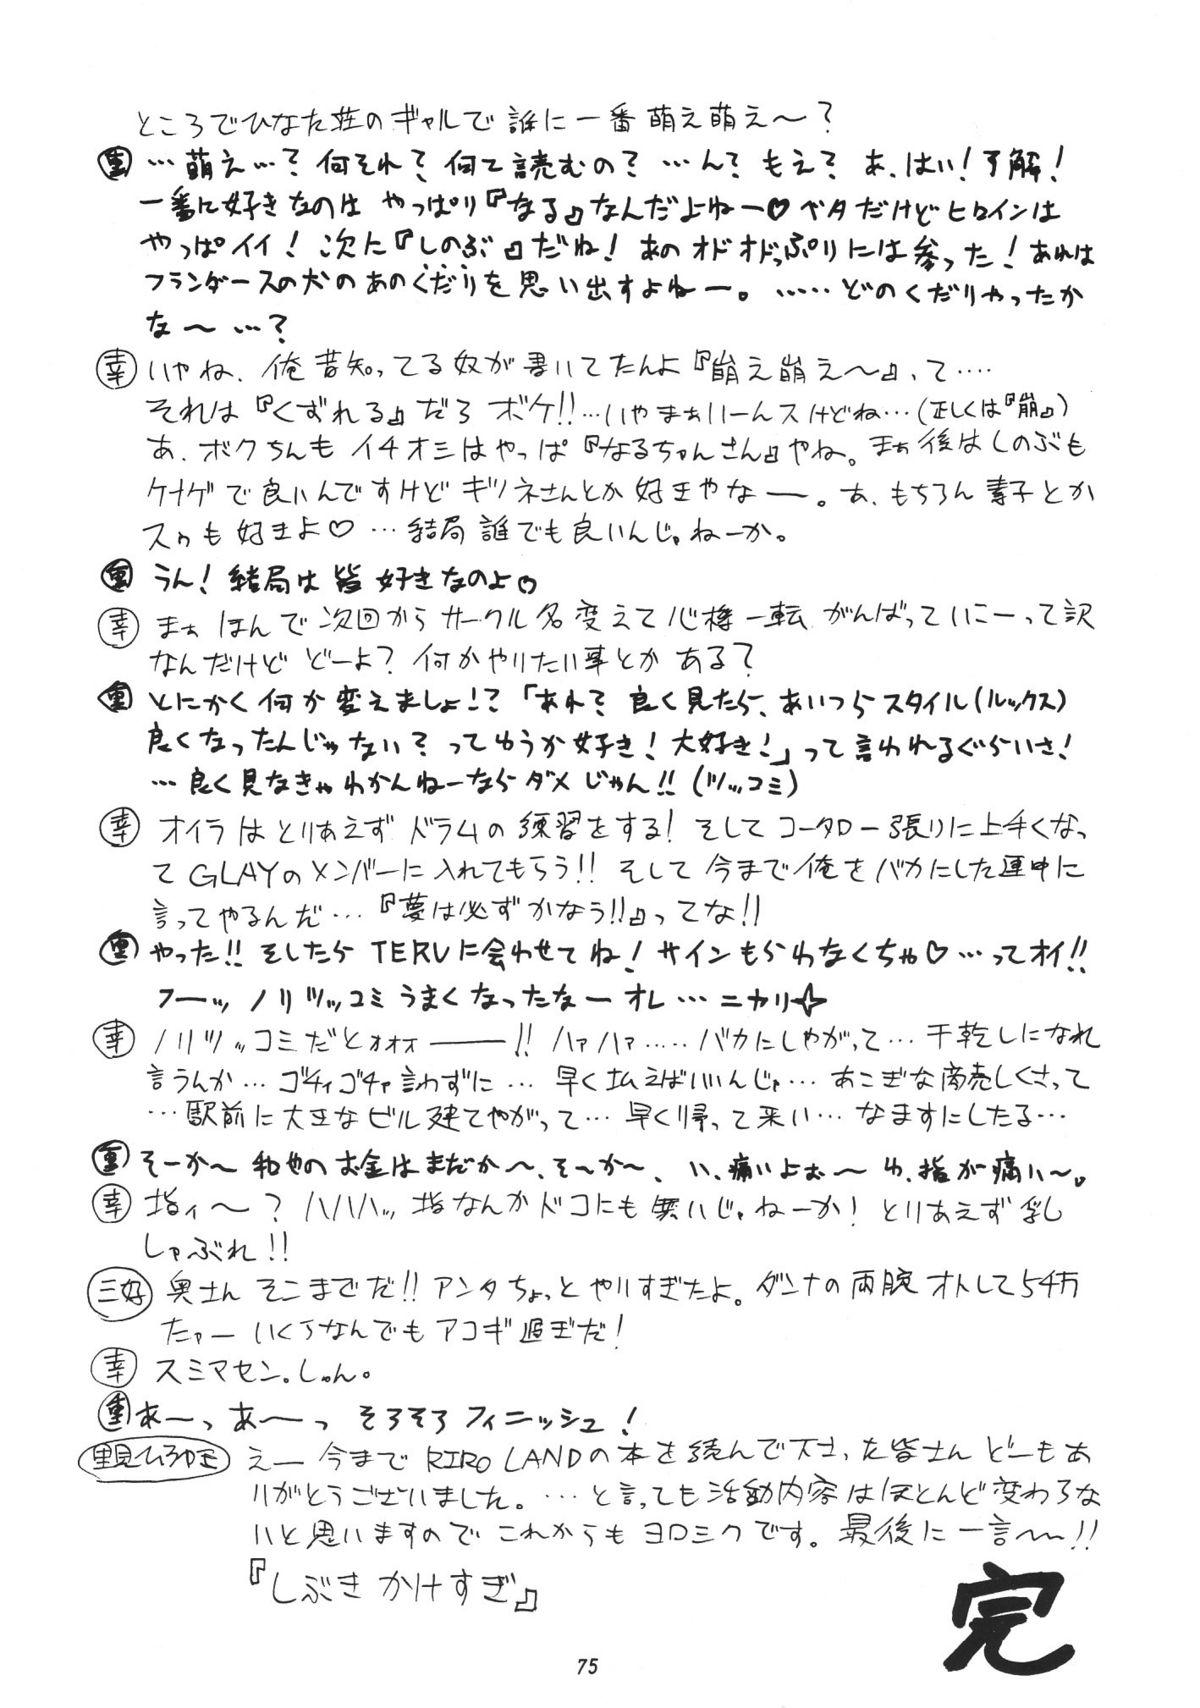 ところでひなた荘のギャルで誰に一番萌え萌え〜?
…萌え…?何それ?何て読むの?…ん?もえ?あ、はい!了解!
一番に好きなのはやっぱり『なる』なんだよねー♡ベタだけどヒロインは
やっぱイイ!次に『しのぶ』だね!あのオドオドっぷりには参った!あれは
フランダースの犬のあのくだりを思い出すよねー。……どのくだりやったか
な〜…?
幸 いやね、俺昔知ってる奴が書いてたんよ『崩え崩え〜』、って‥‥
それは『くずれる』だろボケ!!…いやまぁいーんスけどね…(正しくは『崩』)
あ、ボクちんもイチオシはやっぱ『なるちゃんさん』やね。まぁ後はしのぶも
ケナゲで良いんですけどキツネさんとか好きやなー。あ、もちろん素子とか
スゥも好きよ♡…結局誰でも良いんじゃねーか。
うん!結局は皆好きなのよ♡
幸 まぁほんで次回からサークル名変えて心機一転がんばっていこーって訳
なんだけどどーよ?何かやりたい事とかある?
とにかく何か変えましょ!?「あれ?良く見たら、あいつらスタイル(ルックス)
良くなったんじゃない?ってゆうか好き!大好き!」って言われるぐらいさ!
…良く見なきゃわかんねーならダメじゃん!!(ツッコミ)
幸 オイラはとりあえずドラムの練習をする!そしてコータロー張りに上手くなっ
てGLAYのメンバーに入れてもらう!!そして今まで俺をバカにした連中に
言ってやるんだ…『夢は必ずかなう!!』ってな!!
やった!!そしたらTERUに会わせてね!サインもらわなくちゃ♡…ってオイ!!
フーッノリツッコミうまくなったなーオレ…ニカリ☆
幸 ノリツッコミだとォォォ――!!ハァハァ……バカにしやがって…干乾しになれ
言うんか…ゴチャゴチャ言わずに…早く払えばいいんじゃ…あこぎな商売しくさって
…駅前に大きなビル建てやがって…早く帰って来い…なますにしたる…
そーか〜和也のお金はまだか〜、そ〜か〜、い、痛いよぉ〜ゆ、指が痛い〜。
幸 指ィ〜?ハハハッ、指なんかドコにも無いじゃねーか!とりあえず乳
しゃぶれ!!
三好 奥さんそこまでだ!!アンタちょっとやりすぎたよ。ダンナの両腕オトして5千万
たァーいくらなんでもアコギ過ぎだ!
幸 スミマセン。しゅん。
あーっあ〜っそろそろフィニッシュ!
里見ひろゆき えー今までRIRO LANDの本を読んで下さった皆さんどーもあ
りがとうございました。…と言っても活動内容はほとんど変わらな
いと思いますのでこれからもヨロシクです。最後に一言〜!!
『しぶきかけすぎ』
完
75